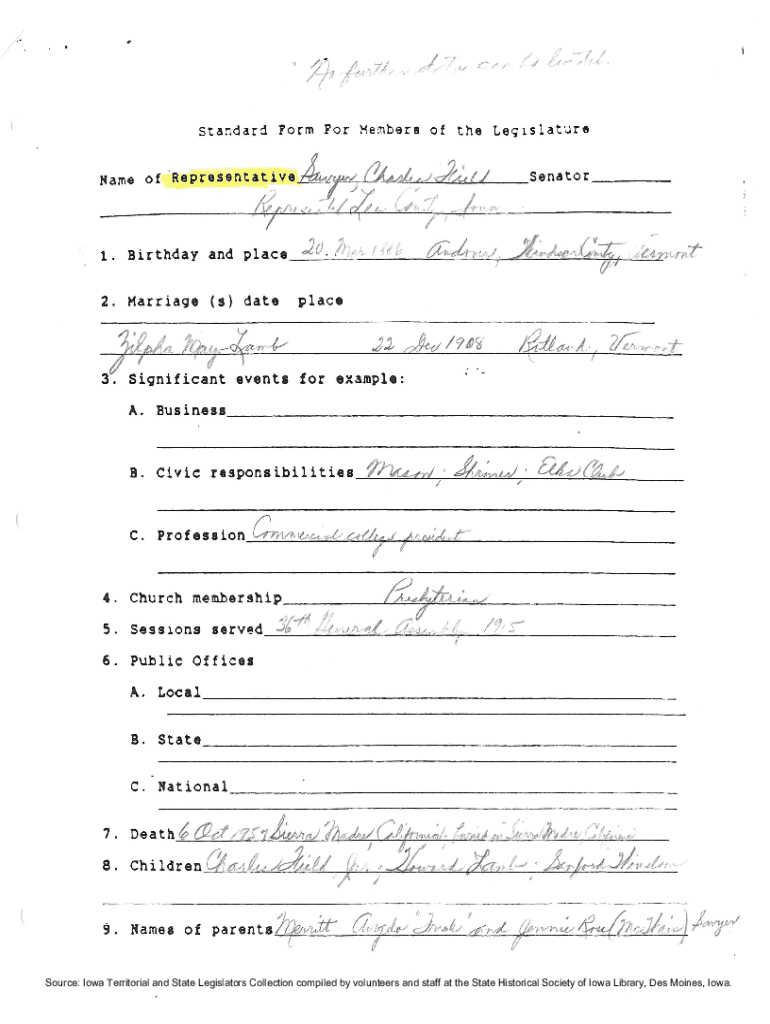 No further data can be located.
Standard Form For Members of the Legislature
Name of Representative Sawyer, Charles Field Senator
Represented Lee County, Iowa
1. Birthday and place 20 Mar 1886 Andover, Windsor County, Vermont
2. Marriage (s) date place
Zilpha May Lamb 22 Dec 1908 Rutland, Vermont
3. Significant events for example:
A. Business
B. Civic responsibilities Mason; Shriner; Elks Club
C. Profession Commercial college president
4. Church membership Presbyterian
5. Sessions served 36th General Assembly 1915
6. Public Offices
A. Local
B. State
C. National
7. Death 6 Oct 1957 Sierra Madre, California; buried in Sierra Madre,
8. Children Charles Field Jr.; Howard Lamb; Sanford Winslow
9. Names of parents Merritt "Frank" and Jennie Rose Sawyer
Source: Iowa Territorial and State Legislators Collection compiled by volunteers and staff at the State Historical Society of Iowa Library, Des Moines, Iowa.